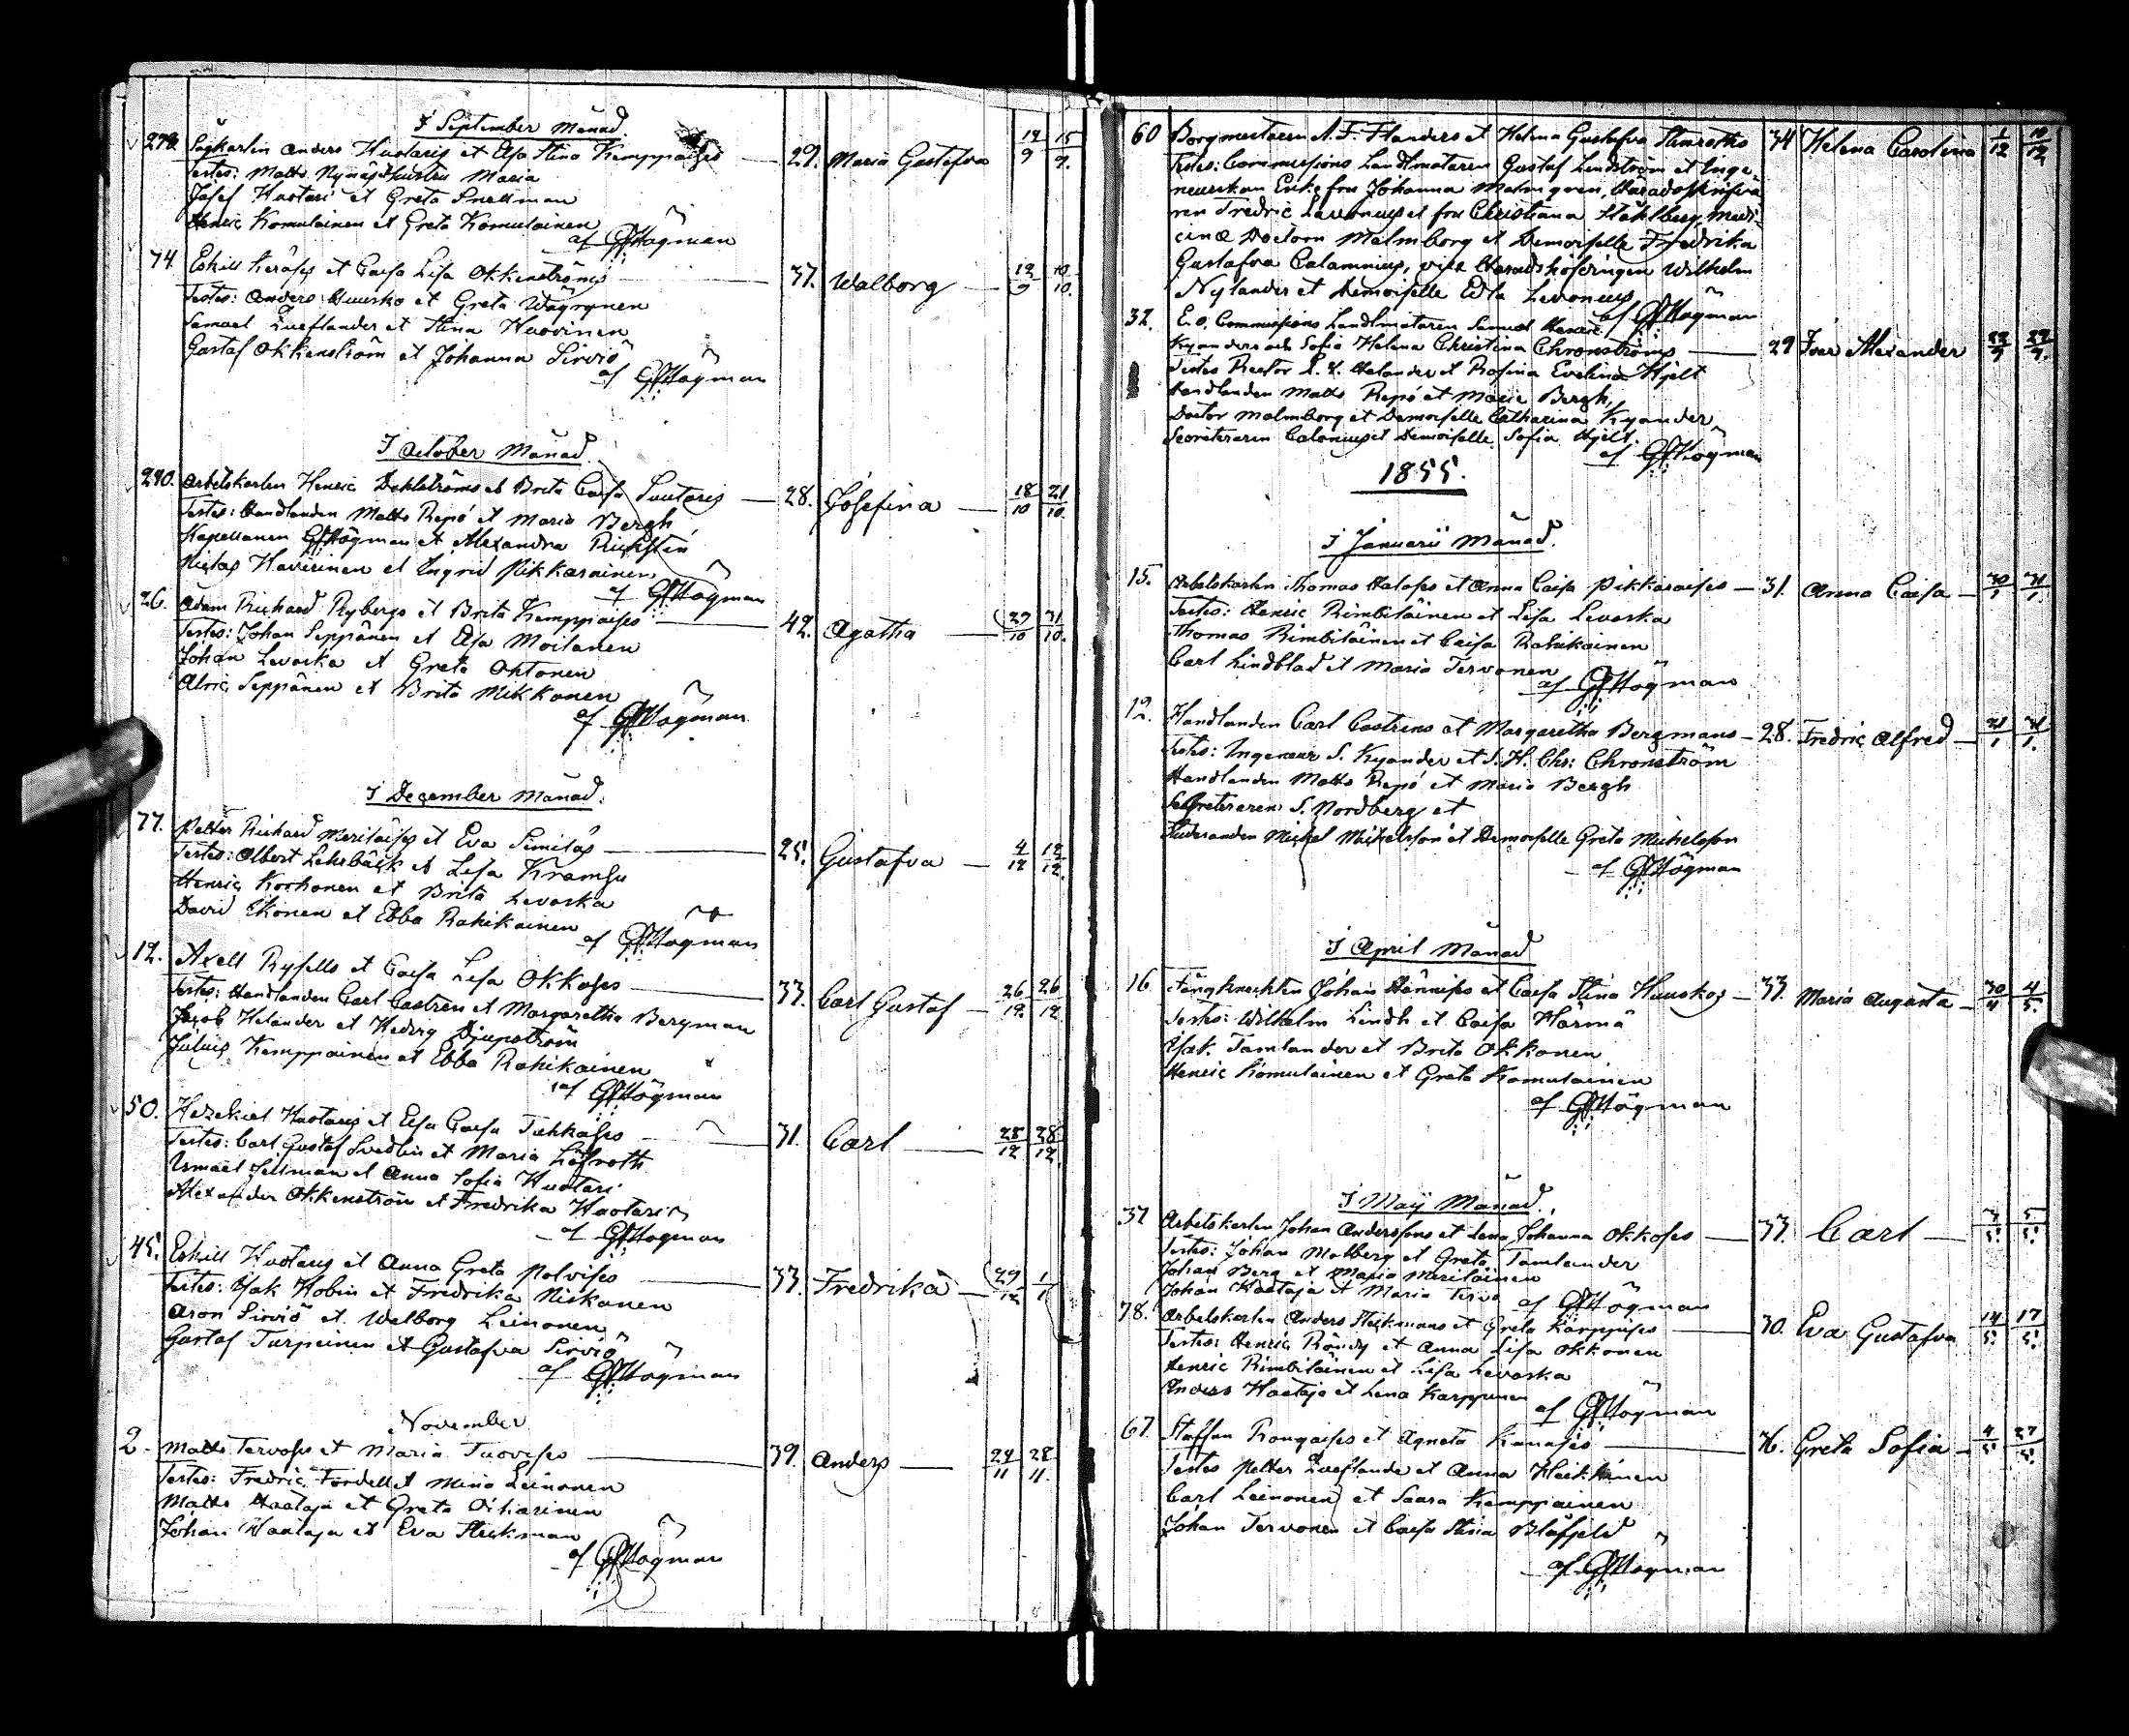 I September Månad.
290. Sågkarlen Anders Huotaris et Elsa Stina Kemppaises — 29. Maria Gustafva 12/9 15/9.
Testes: Matts Hustru Maria
Josef Huotari et Greta Snellman
Henric Komulainen et Greta Komulainen
af GFHögman
74 Eskill Keräses et Caisa Lisa Okkenströms — 37. Walborg — 12/9 10/10.
Testes: Anders Huusko et Greta Wäyrynen
Samuel Zweflander et Stina Huovinen
Gustaf Okkenström et Johanna Sirviö
af GFHögman
I October Månad.
290. Arbetskarlen Henric Dahlströms et Brita Caisa Suutaris — 28. Josefina — 18/10 21/10.
Testes: Handlanden Matts Repó et Maria Bergh
Kapellanen GFHögman et Alexandra
Niclas Haverinen et Ingrid Pikkarainen
af GFHögman
26. Adam Richard Rybergs et Brita Kemppaises — 42. Agatha — 29/10 31/10.
Testes: Johan Seppänen et Elsa Moilanen
Johan Levaska et Greta Ohtonen
Alric Seppänen et Brita Mikkonen
af GFHögman
I December Månad.
77. Petter Richard Meriläises et Eva Similäs — 25. Gustafva — 4/12 12/12.
Testes: Albert Lehrbäck et Lisa Kramsu
Henric Korhonen et Brita Levaska
David Ikonen et Ebba Rahikainen
af GFHögman
12. Axell Rysells et Caisa Lisa Okkoses — 33. Carl Gustaf — 26/12 26/12
Testes: Handlanden Carl Castrén et Margaretha Bergman
Jacob Helander et Hedvig Djupström
Julius Kemppainen et Ebba Rahikainen
af GFHögman
50. Hezekiel Huotaris et Elsa Caisa Tuhkases — 31. Carl — 25/12 28/12.
Testes: Carl Gustaf Svedlin et Maria Löfroth
Ismael Sellman et Anna Sofia Huotari
Alexander Okkenström et Fredrika Huotari
af GFHögman
45. Eskill Huotaris et Anna Greta Polvises — 33. Fredrika — 29/12 1/1
Testes: Isak Hobin et Fredrika Niskanen
Aron Sirviö et Walborg Leinonen
Gustaf Turpeinen et Gustafva Sirviö
af GFHögman
November
2. Matts Tervoses et Maria Tuovises — 39. Anders — 24/11 28/11.
Testes: Fredric Fordell et Mina Leinonen
Matts Haataja et Greta Oikarinen
Johan Haataja et Eva Stickman
af GFHögman
60 Borgmestaren A. F. Flanders et Helena Gustafva Stenroths 34 Helena Carolina 1/12 10/12
Testes: Commissions Landtmätaren Gustaf Lindström et Inge-
neurskan Enkefru Johanna Malmgren, Häradsskrifva
ren Fredric Lavonius et fru Christiana Ståhlberg, Medi-
cinæ Doctorn Malmborg et Demoiselle Fredrika
Gustafva Calamnius, vice Häradshöfdingen Wilhelm
Nylander et Demoiselle Edla Lavonius
af GFHögman
32. E. o. Commissions Landtmätaren Samuel Henric
Kyanders och Sofia Helena Christina Chronströms — 29 Ivar Alexander 22/9 29/9.
Testes Rector Helander et Rosina Evelina Hjelt
Handlanden Matts Repó et Maria Bergh,
Doctor Malmborg et Demoiselle Catharina Kyander
Secreteraren Calonius et Demoiselle Sofia Hjelt.
af GFHögman
1855.
I Januarii Månad.
15. Arbetskarlen Thomas Haloses et Anna Caisa Pikkaraises — 31. Anna Caisa — 30/1 31/1.
Testes: Henric Rimbiläinen et Lisa Levaska
Thomas Rimbiläinen et Caisa Rahikainen
Carl Lindblad et Maria Tervonen
af GFHögman
12. Handlanden Carl Castréns et Margaretha Bergmans — 28. Fredric Alfred — 21/1 31/1.
Testes: Ingeneur S. Kyander et S. H. Chr: Chronström
Handlanden Matts Repó et Maria Bergh
Secreteraren S. Nordberg et
Studeranden Michel Michelsson et Demoiselle Greta Michelsson
af GFHögman
I April Månad
16 Fångknechten Johan Hännises et Caisa Stina Huuskos — 33. Maria Augusta — 30/4 4/5.
Testes: Wilhelm Lindh et Caisa Härmä
Isak Tamlander et Brita Okkonen
Henric Komulainen et Greta Komulainen
af GFHögman
I Maij Månad.
37 Arbetskarlen Johan Anderssons et Lena Johanna Okkoses — 33. Carl — 3/5. 5/5.
Testes: Johan Malberg et Greta Tamlander
Johan Berg et Maria Meriläinen
Johan Haataja et Maria Tervo af GFHögman
78. Arbetskarlen Anders Stickmans et Greta Karppises — 30. Eva Gustafva 14/5. 17/5.
Testes: Henric Rändy et Anna Lisa Okkonen
Henric Rimbiläinen et Lisa Levaska
Anders Haataja et Lena Karppinen
af GFHögman
67. Staffan Rongaises et Agneta Kanases — 36. Greta Sofia — 4/5. 27/5.
Testes Petter Zweflander et Anna Heikkinen
Carl Leinonen et Saara Kemppainen
Johan Tervonen et Caisa Stina Blåfjeld
af GFHögman